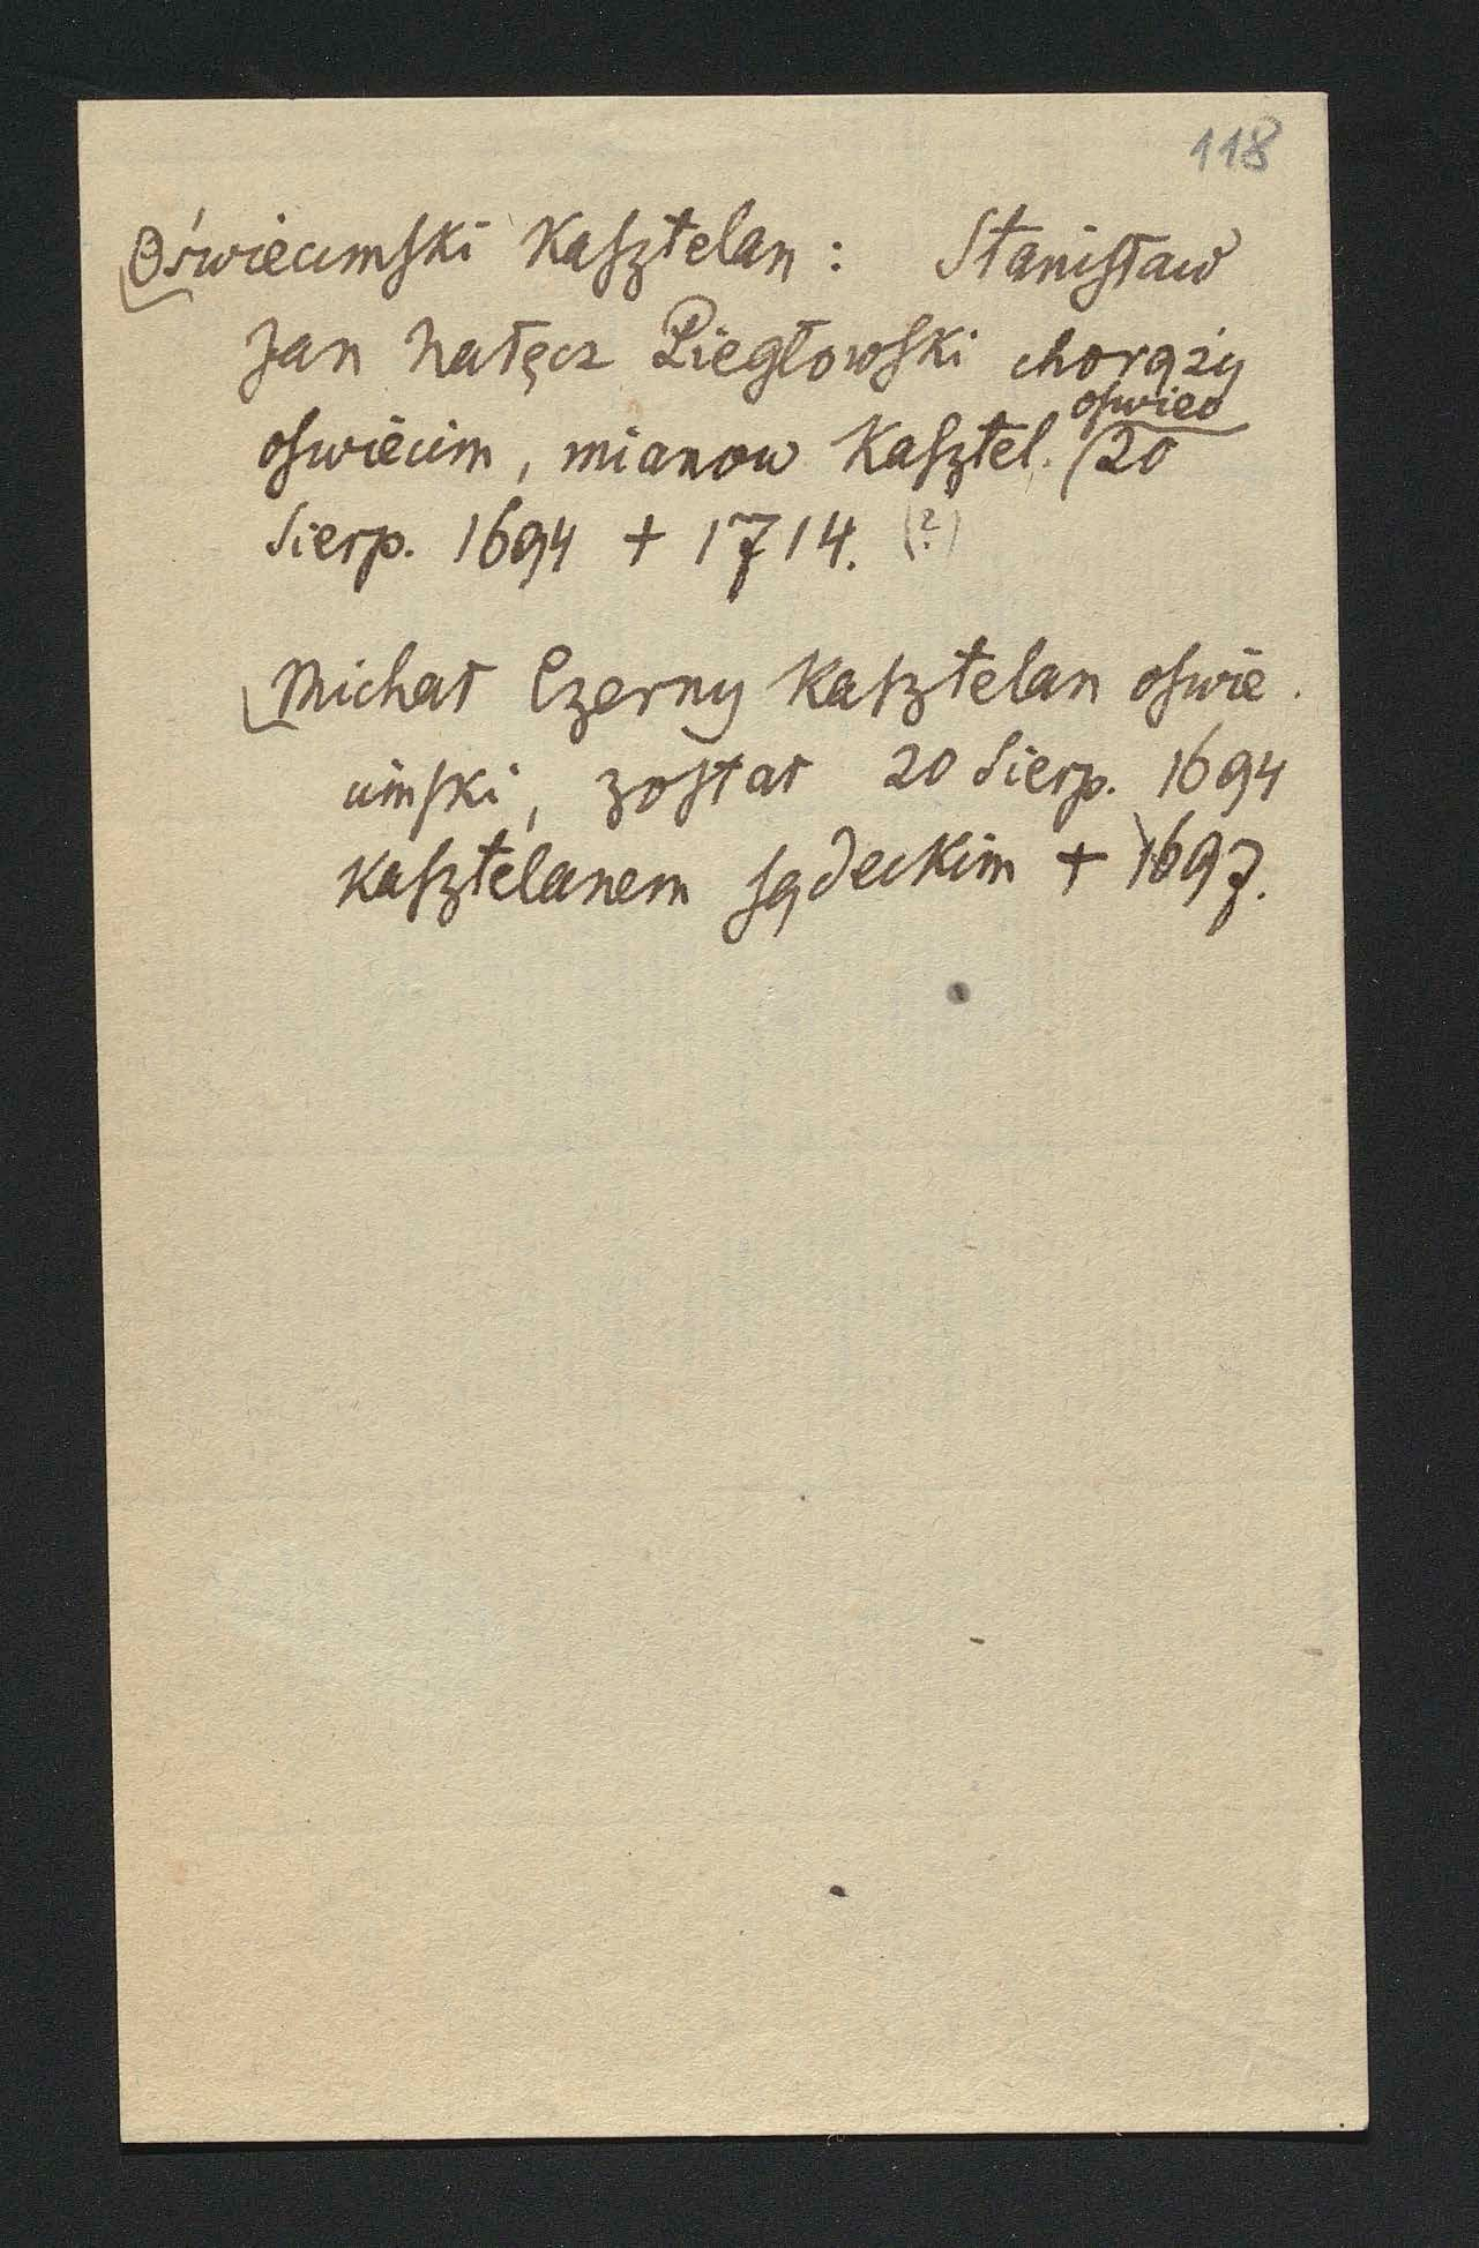 118
Oświecimski Kasztelan : Stanisław
Jan Nałęcz Piegłowski chorąży
oswiecim, mianow Kasztel. oswiec 20
Sierp. 1694 + 1714. (?)
Michał Czerny Kasztelan oswie
cimski, został 20 Sierp. 1694
Kasztelanem sądeckim + 1697.